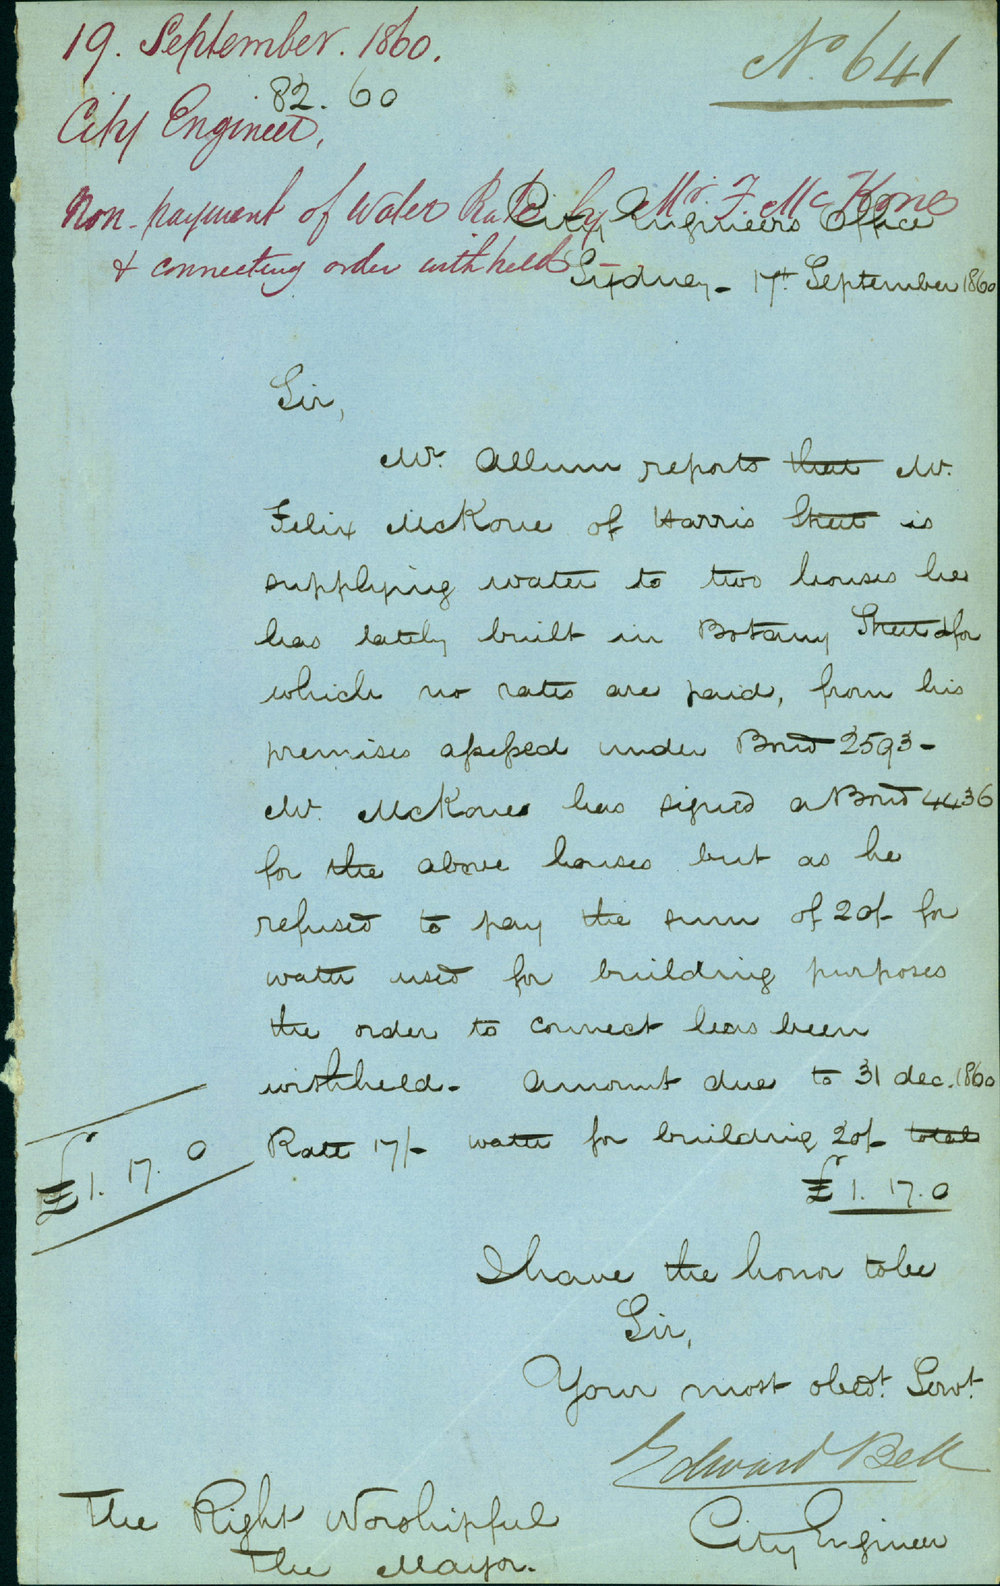 19. September. 1860.
No. 641
82. 60
City Engineer,
Non-payment of Water Rate by Mr. F. McKone
& connecting order withheld
City Engineers Office
Sydney - 17th September 1860
Sir,
Mr. Allum reports that Mr.
Felix McKone of Harris Street is
supplying water to two houses he
has lately built in Botany Street & for
which no rates are paid, from his
premises assessed under Bond 2593 -
Mr. McKone has signed a Bond 4436
for the above houses but as he
refused to pay the sum of 20/- for
water used for building purposes
the order to connect has been
withheld - Amount due to 31 dec. 1860
Rate 17/- water for building 20/- total
£1. 17. 0
£1. 17. 0
I have the honor to be
Sir,
Your most obedt. Servt.
Edward Bell
City Engineer
The Right Worshipful
The Mayor.